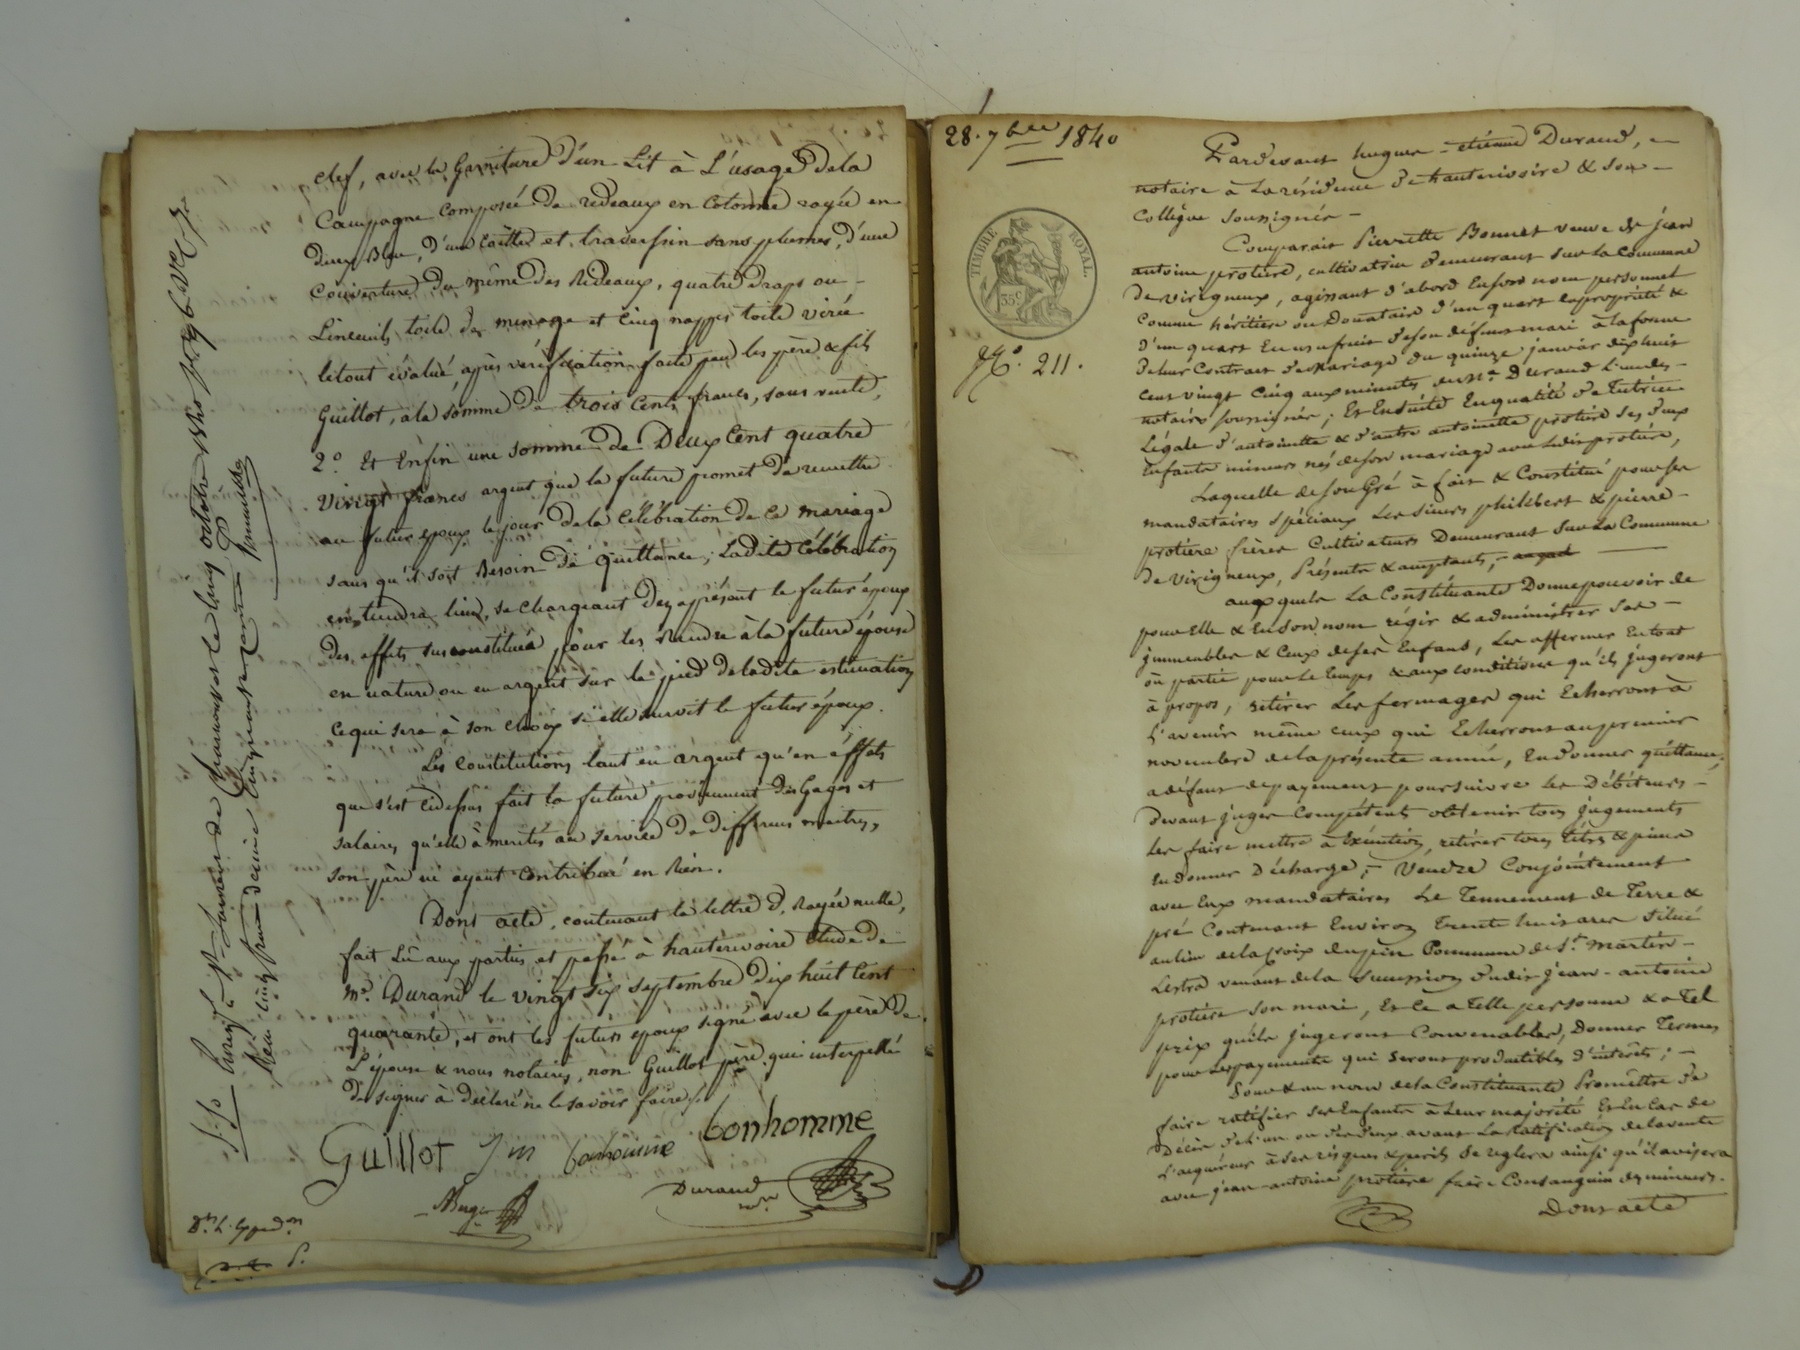 clef, avec la Garniture d'un Lit à L'usage de la
Campagne composée de rideaux en Cotonne rayée en
deux Bleu, d'une Coitte et traversin sans plumes, d'une
Couverture du même des Rideaux, quatre draps ou -
Linceuils toile de menage et Cinq nappes toile virée
le tout évalué, après vérification faite par les père & fils
Guillot, à la somme de trois Cents francs, sous vente,
2.º Et Enfin une somme de Deux Cent quatre
Vinigt francs argent que la future promet de remettre
au futur epoux le jour de la Célébration de Ce mariage
sans qu'il soit Besoin de quittance, Ladite Célébration
en tiendra lieu, se Chargeant dez apprésent le futur époux
des effets sus constitués, pour les Rendre à la future épouse
en nature ou en argent sur le pied de ladite estimation
Ce qui sera à son choix si elle survit le futur époux.
Les Constitutions tant en argent qu'en éffets
que s'est Cidessus fait la future proviennent des Gages et
salaires qu'elle à mérités au service de differens maitres,
son père n'y ayant Contribué en Rien.
Dont acte, contenant la lettre d, Rayée nulle,
fait Lû aux parties et passé à hauterivoire Etude de
me. Durand le vingt six septembre Dix huit Cent
quarante, et ont les futurs epoux signé avec le père de
L'épouse & nous notaires, non Guillot père qui interpellé
de signer à déclaré ne le savoir faire
Guillot J m bonhomme bonhomme
Durand nre.
Enregé à St. Laurent de Chamousset le Cinq octobre 1840
Reçu Cinq francs décime Cinquante
28. 7bre 1840
TIMBRE ROYAL.
35c
No. 211.
Pardevant hugues - etienne Durand, -
notaire à La résidence de hauterivoire & son -
Collègue soussignés -
Comparait Pierrette Bonnet veuve de jean
antoine protière, cultivatrice demeurant sur la Commune
de virigneux, agissant d'abord En son nom personnel
Comme héritière ou Donataire d'un quart en propriété &
d'un quart En usufruit de son défunt mari à la forme
de leur Contrat de Mariage du quinze janvier dix huit
Cent vingt Cinq aux minutes de Me. Durand L'un des -
notaires soussignés; Et Ensuite En qualité de Tutrice
Légale d'antoinette & d'autre antoinette protière ses deux
Enfants mineurs nés de son mariage avec Ledit protière,
Laquelle de son Gré à fait & Constitué pour ses
mandataires spéciaux Les sieurs philibert & pierre -
protière frères Cultivateurs Demeurant sur La Commune
de Virigneux, Présents & acceptants, -
auxquels La Constituante Donne pouvoir de
pour Elle & En son nom régir & administrer ses -
immeubles & Ceux de ses Enfants, Les affermer En tout
où partie pour Le temps & aux conditions qu'ils jugeront
à propos, retirer Les fermages qui Echerront à
L'avenir même ceux qui Echerront au premier
novembre de la présente année, En donner quittance,
a défaut de payement poursuivre Les Débiteurs -
Devant juges Compétents obtenir tous jugements
Les faire mettre à Exécution, retirer tous titres & pièces
En donner Décharge; - Vendre Conjointement
avec Eux mandataires Le Tennement de Terre &
pré Contenant Environ Trente huit ares situé
au lieu de la Croix du pin Commune de St. Martin -
Lestra venant de la succession dudit jean - antoine
protière son mari, Et Ce a Telle personne & a Tel
prix qu'ils jugeront Convenables, Donner Termes
pour Les payements qui seront productibles d'intérêts; -
Pour & au nom de la Constituante Promettre de
faire ratifier ses Enfants à Leur majorité Et En Cas de
Décès de l'un ou des deux avant La Ratification de la vente
L'acquéreur à ses risques & perils se reglera ainsi qu'il avisera
avec jean - antoine protière frère Consanguin des mineurs.
Dont acte